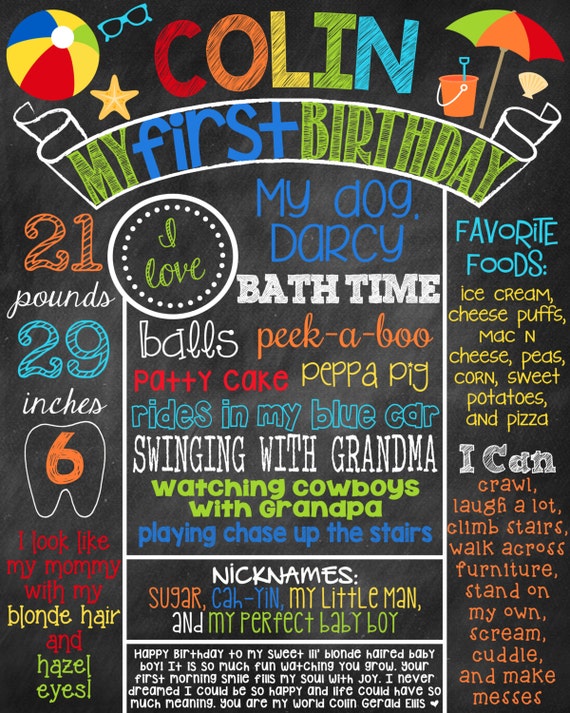 COLIN
MY first BIRTHDAY
21
pounds
29
inches
6
I look like
my mommy
with my
blonde hair
and
hazel
eyes!
I
love
My dog,
Darcy
BATH TIME
balls
peek-a-boo
Patty cake
Peppa Pig
rides in my blue car
SWINGING WITH GRANDMA
watching cowboys
with Grandpa
playing chase up the stairs
NICKNAMES:
Sugar, Cah-Yin, My Little Man,
and My Perfect Baby Boy
Happy Birthday to my sweet lil' blonde haired baby
boy! It is so much fun watching you grow. Your
first morning smile fills my soul with joy. I never
dreamed I could be so happy and life could have so
much meaning. You are my world Colin Gerald Ellis ♥
FAVORITE
FOODS:
ice cream,
cheese puffs,
mac n
cheese, peas,
corn, sweet
potatoes,
and pizza
I Can
crawl,
laugh a lot,
climb stairs,
walk across
furniture,
stand on
my own,
scream,
cuddle,
and make
messes